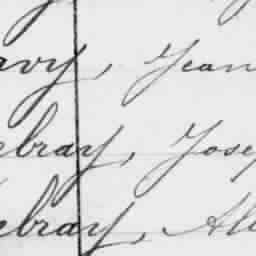 avy, Jean
elbray, Josep
elbray, Al